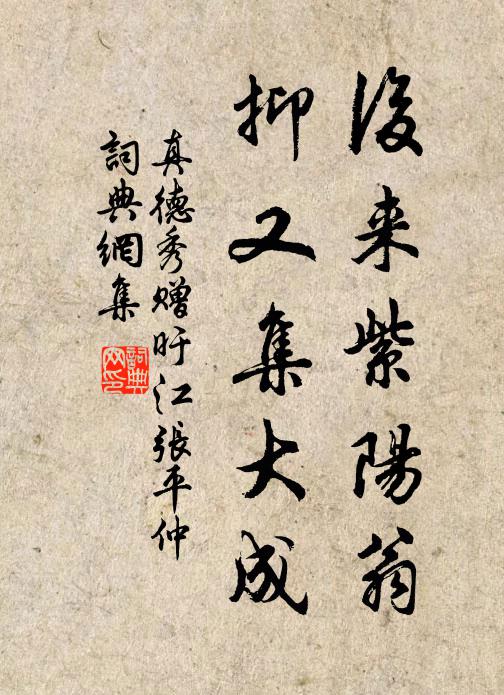 後来紫陽翁
抑又集大成
真德秀贈旴江張平仲
詞典網集
詞典
网印